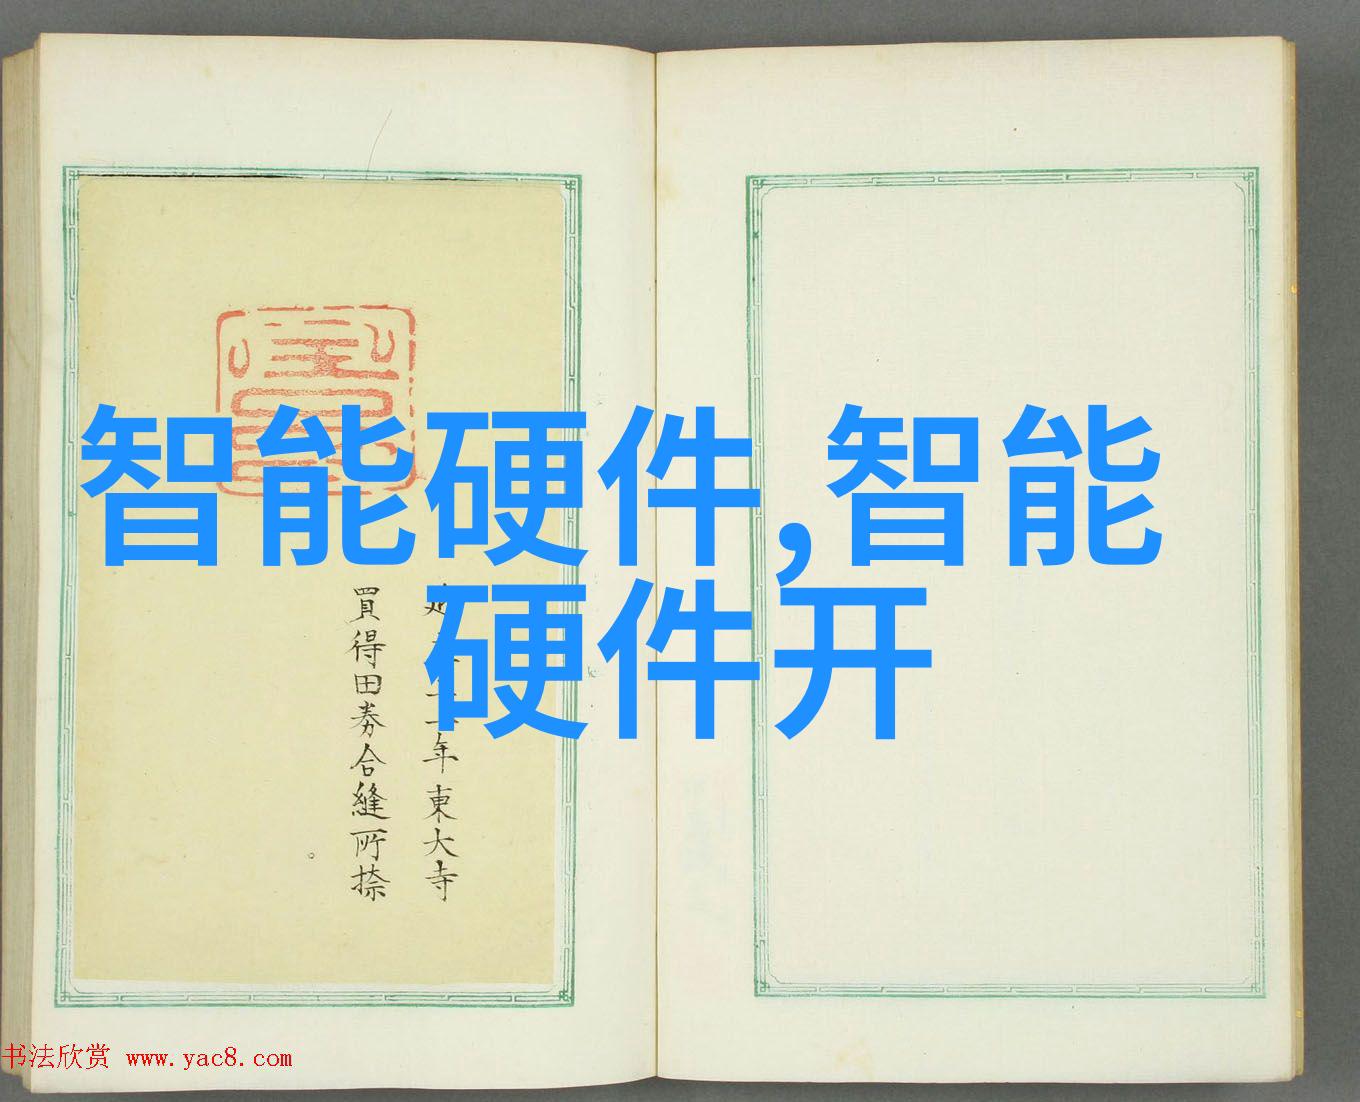 智能硬件,智能
硬件开
年東大寺
買得田券合縫所捺
书法欣赏 www.yac8.com